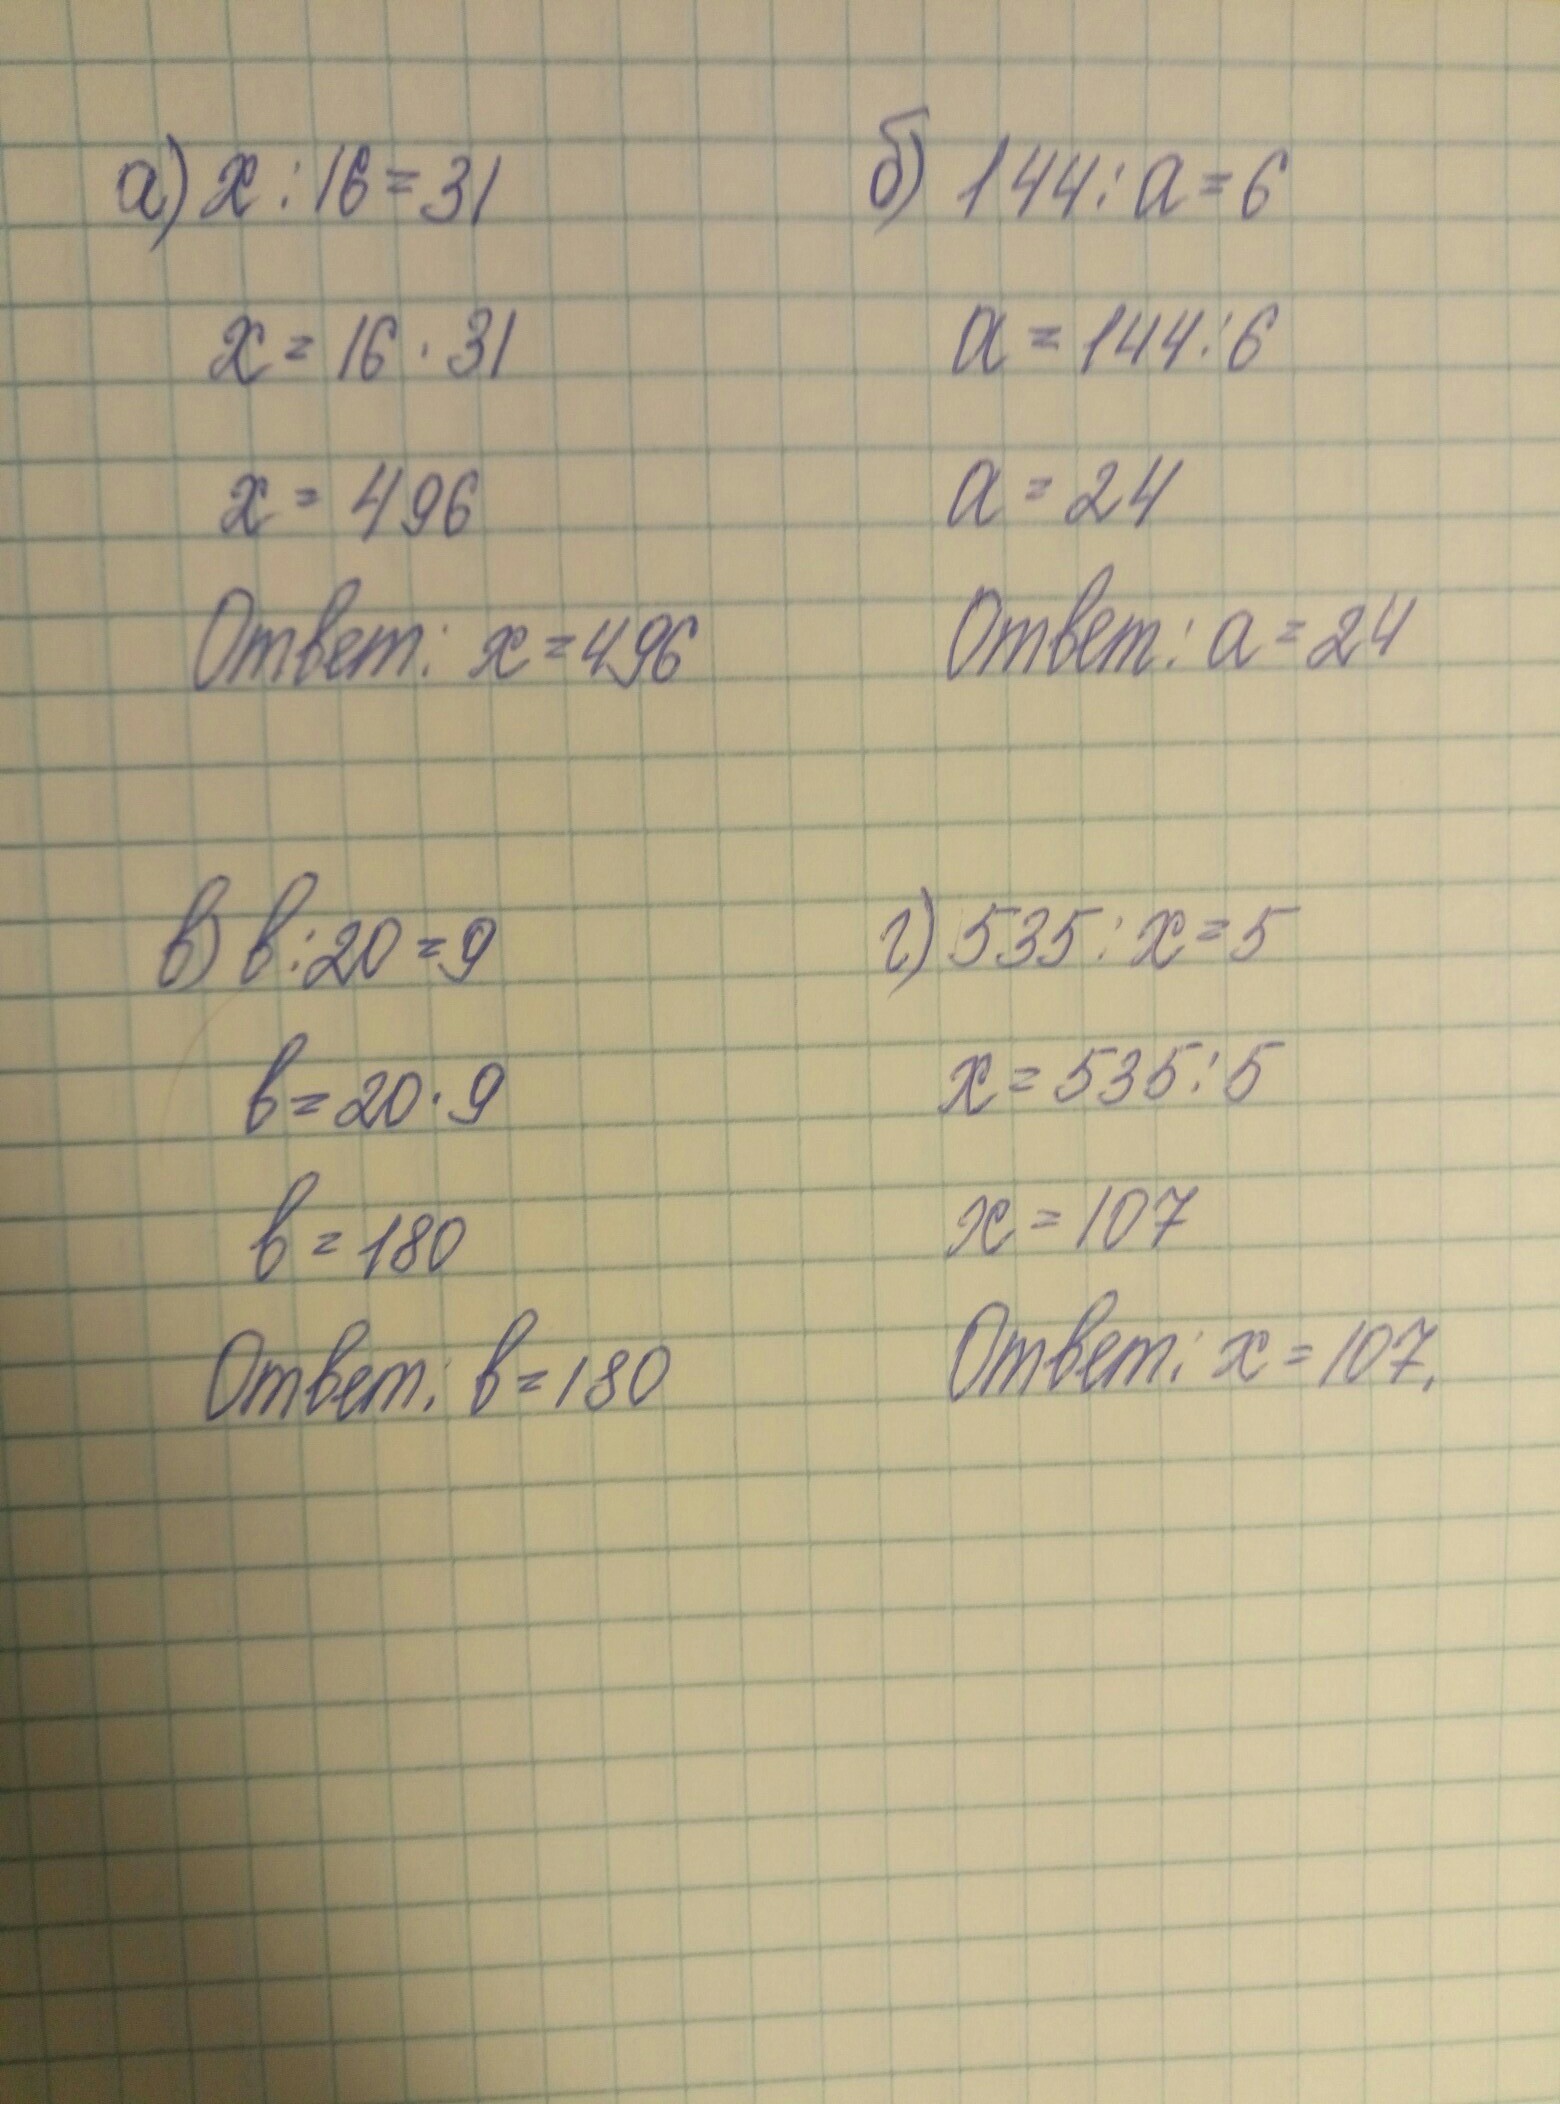 а) x : 16 = 31
x = 16 · 31
x = 496
Ответ: x = 496
б) 144 : a = 6
a = 144 : 6
a = 24
Ответ: a = 24
в) в : 20 = 9
в = 20 · 9
в = 180
Ответ: в = 180
г) 535 : x = 5
x = 535 : 5
x = 107
Ответ: x = 107.